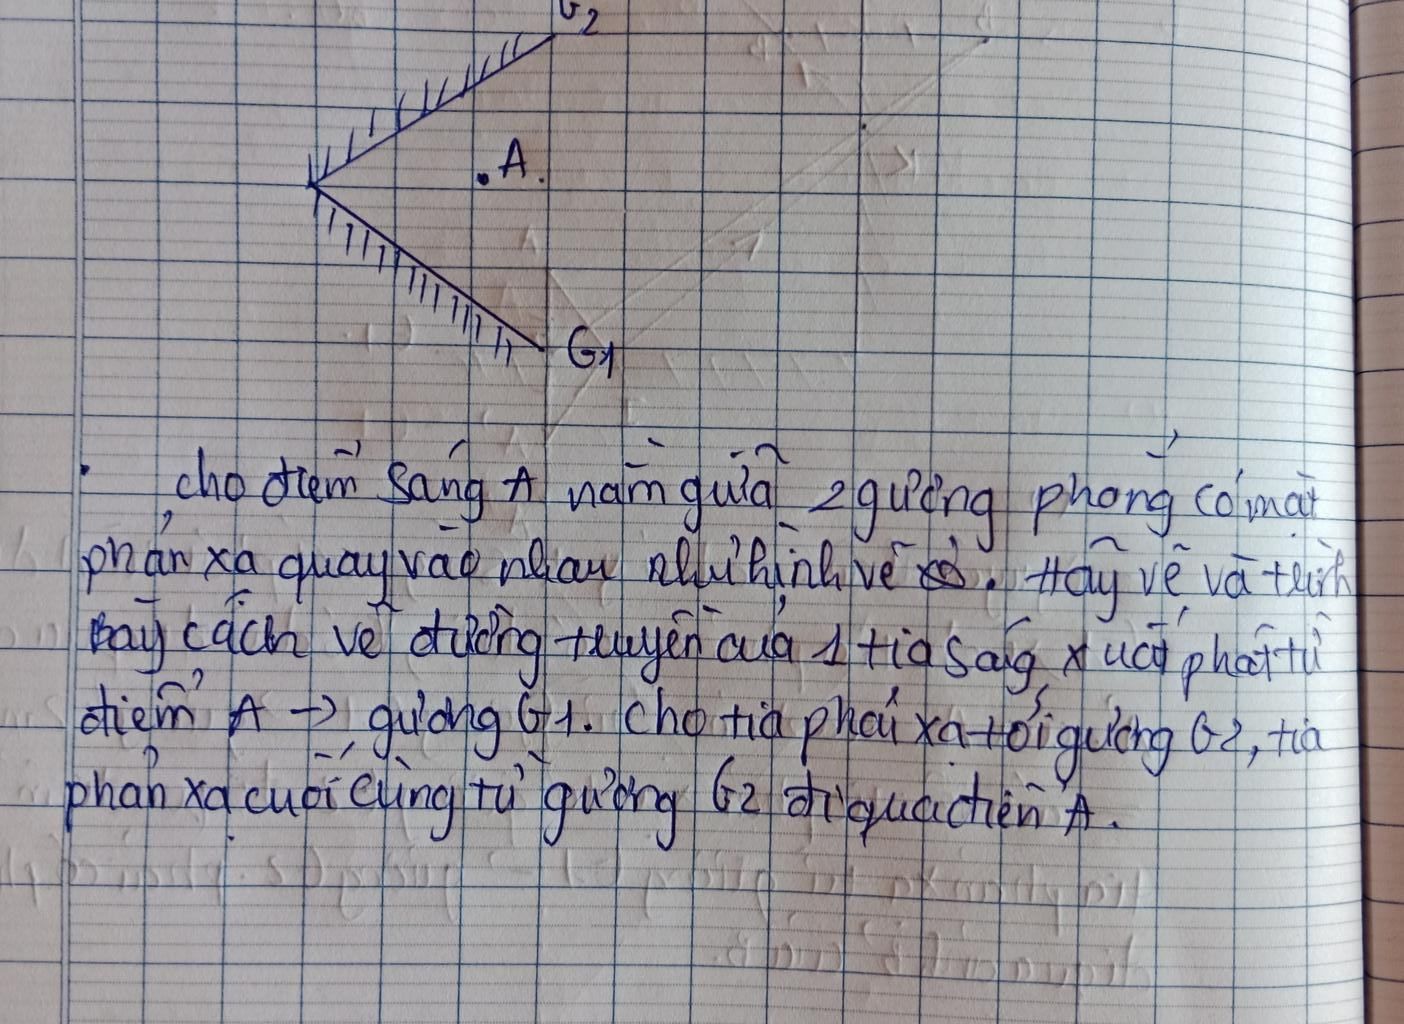 G2
A.
G1
cho điểm sáng A nằm giữa 2 gương phẳng có mặt
phản xạ quay vào nhau như hình vẽ. Hãy vẽ và trình
bày cách vẽ đường truyền của 1 tia sáng xuất phát từ
điểm A → gương G1. Cho tia phải xạ tới gương G2, tia
phản xạ cuối cùng từ gương G2 đi qua điển A.